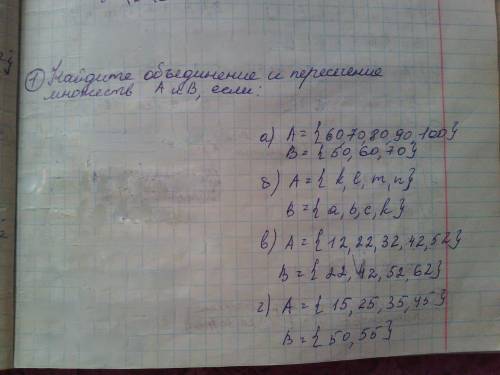 1) Найдите объединение и пересечение
множеств А и В, если:
а) А = {60,70,80,90,100}
В = {50,60,70}
б) А = {k, l, m, n}
В = {a, b, c, k}
в) А = {12,22,32,42,52}
В = {22,42,52,62}
г) А = {15,25,35,45}
В = {50,55}